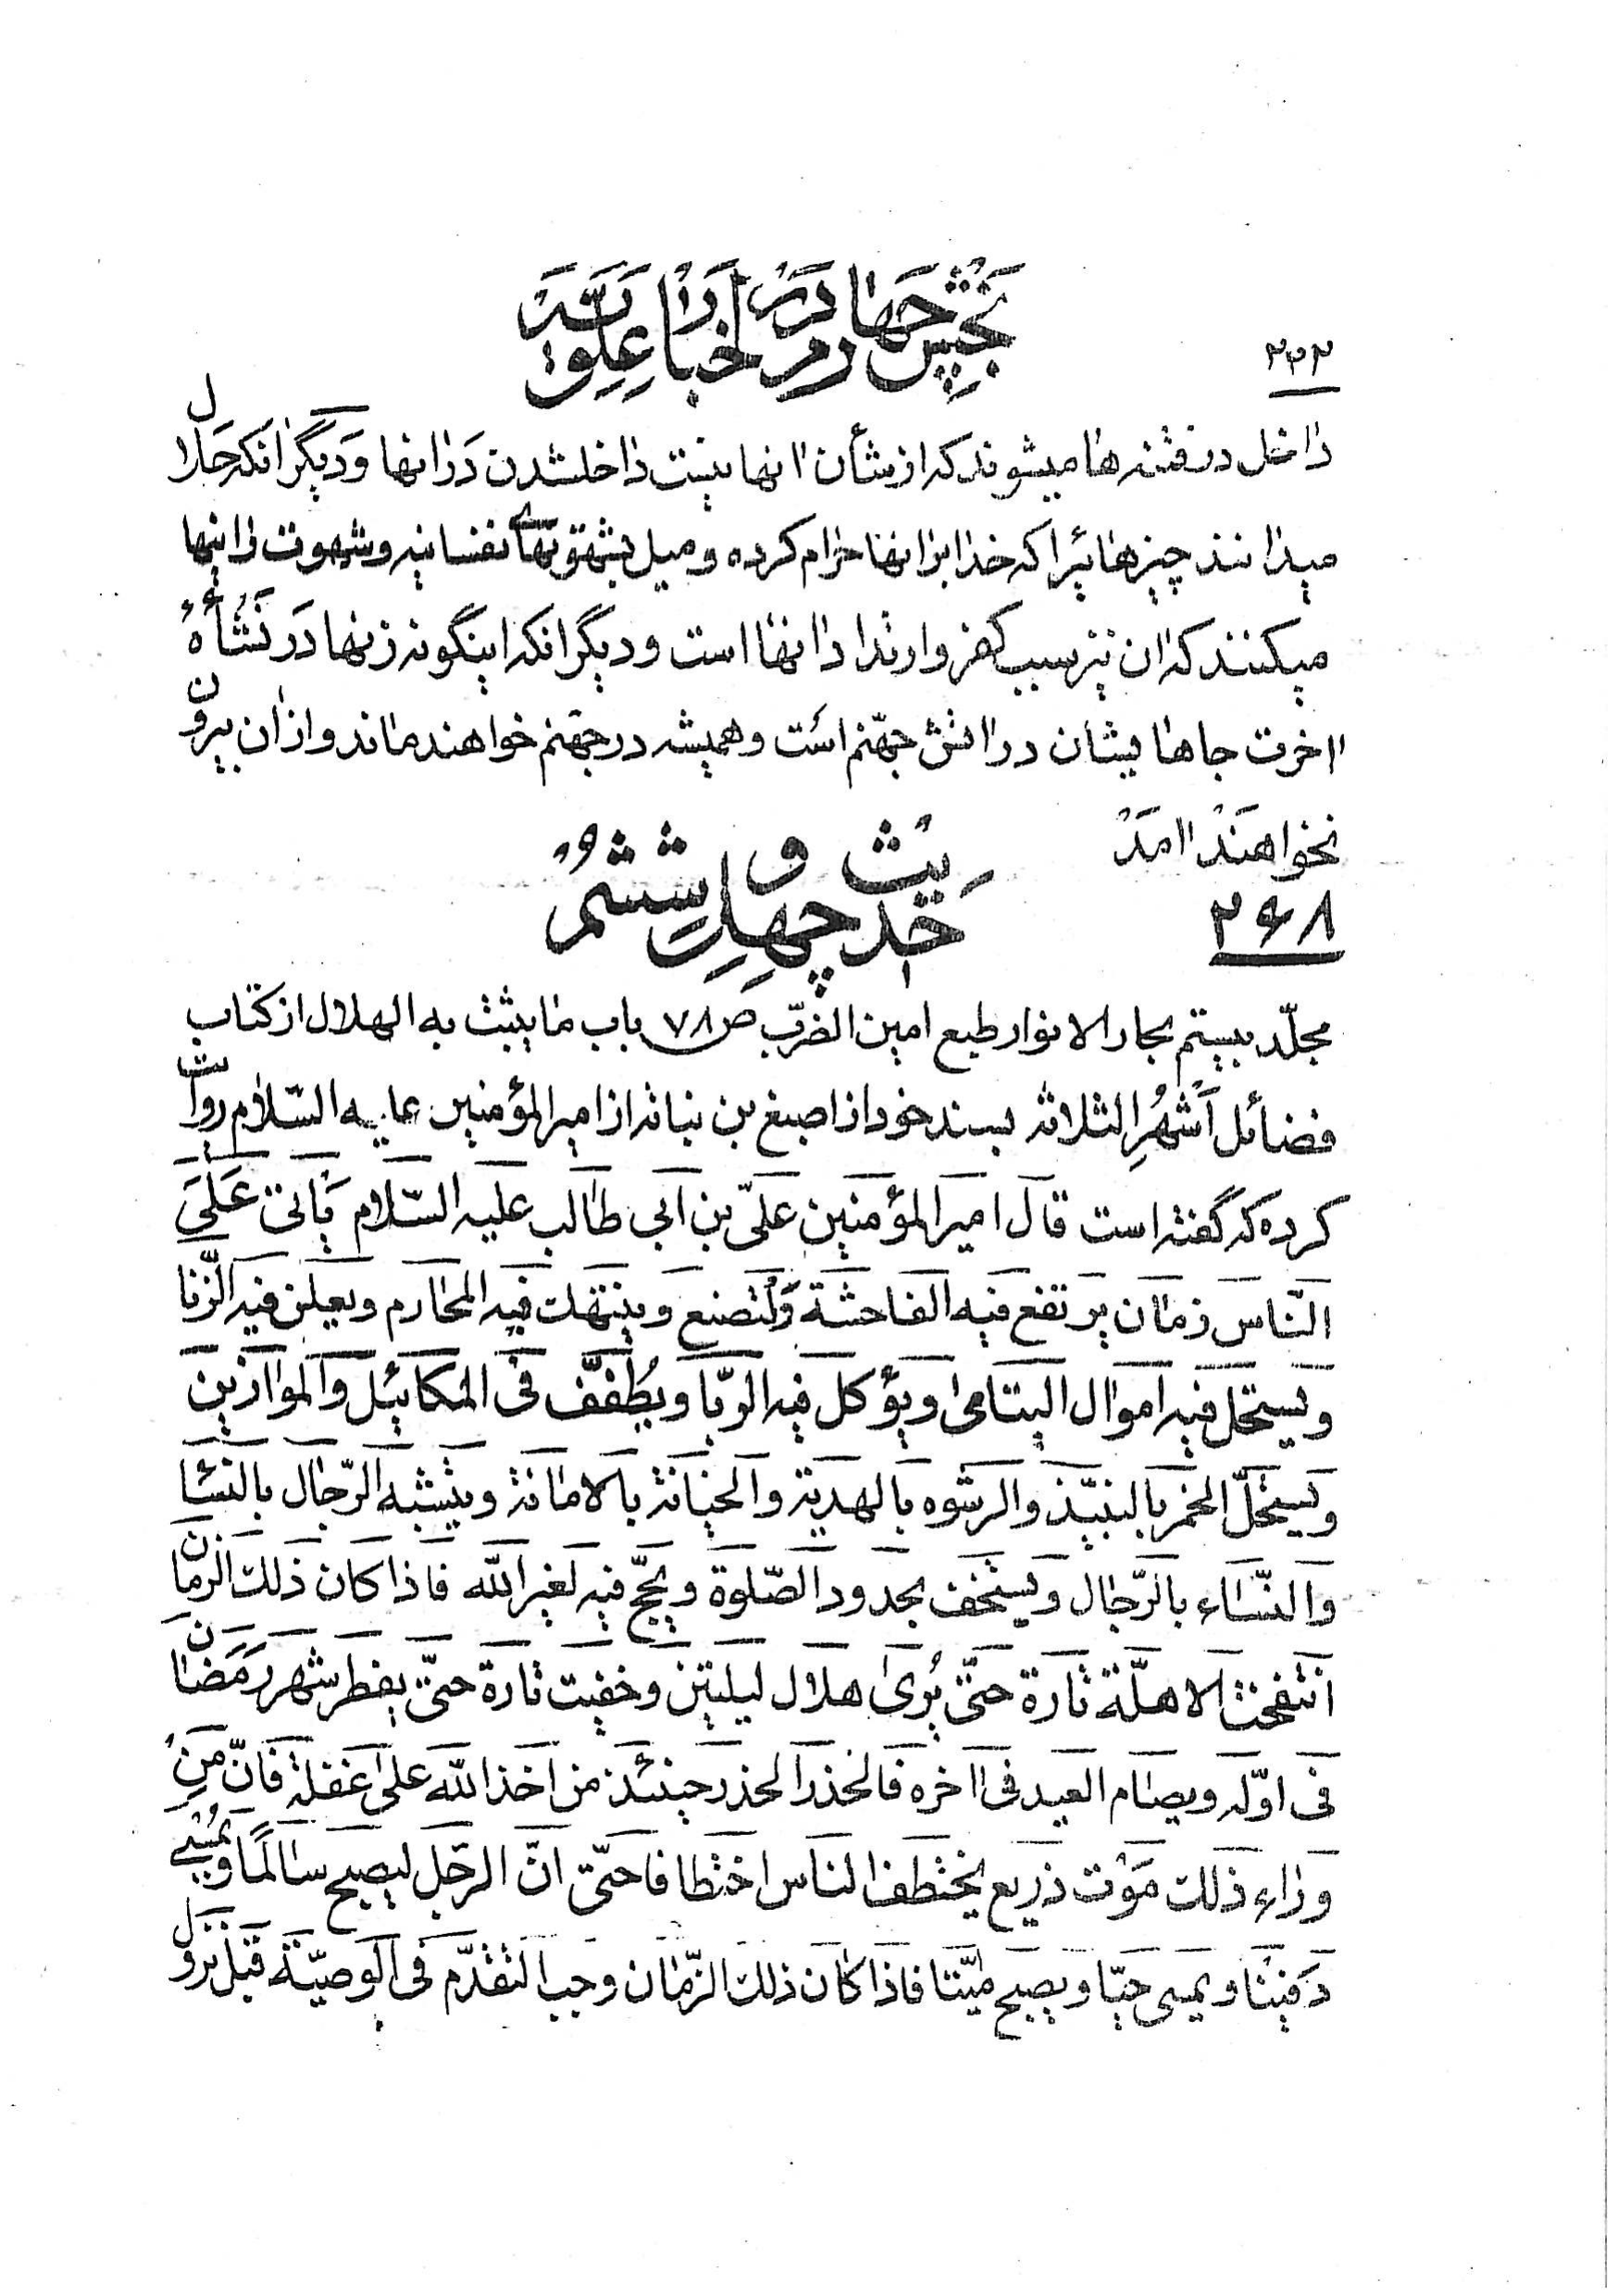 بخش چهارم در اخبار علویه
۲۲۲
داخل در فتنه ها میشوند که از شأن اانها نیست داخلشدن در انها و دیگر انکه حلال
میدانند چیزهائیرا که خدا بر انها حرام کرده و میل بشهوتهای نفسانیه و شهوت رانیها
میکنند که ان نیز سبب کفر و ارتداد انها است و دیگر انکه اینگونه زنها در نشأهٔ
ااخرت جاهایشان در اتش جهنّم است و همیشه در جهنّم خواهند ماند و از ان بیرون
نخواهند اامد
۲۶۸
حدیث چهل و ششم
مجلّد بیستم بحار الانوار طبع امین الضّرب ص ۷۸ باب ما یثبت به الهلال از کتاب
فضائل أشهر الثلاثه بسند خود از اصبغ بن نباته از امیر المؤمنین علیه السّلام روایت
کرده که گفته است قال امیر المؤمنین علیّ بن ابی طالب علیه السّلام یأتی علی
النّاس زمان یرتفع فیه الفاحشة ولتصنع وینتهک فیه المحارم ویعلن فیه الزّنا
ویستحل فیه اموال الیتامی ویؤکل فیه الرّبا ویطفّف فی المکائیل والموازین
ویستحلّ الخمر بالنبیّذ والرشوه بالهدیة والخیانة بالامانة ویتشبه الرّجال بالنسا
والنّساء بالرّجال ویستخف بحدود الصّلوة ویحجّ فیه لغیر الله فاذا کان ذلک الزمان
انتفخت الاهلّة تارة حتّی یری هلال لیلیتین وخفیت تارة حتّی یفطر شهر رمضان
فی اوّله ویصام العید فی ااخره فالحذر الحذر حینئذ من اخذ الله علی غفلة فانّ من
وراء ذلک موت ذریع یختطف الناس اختطافا حتّی انّ الرجل لیصبح سالمًا ویمسی
دفینا ویمسی حیّا ویصبح میّتا فاذا کان ذلک الزّمان وجب التقدّم فی الوصیّة قبل نزول